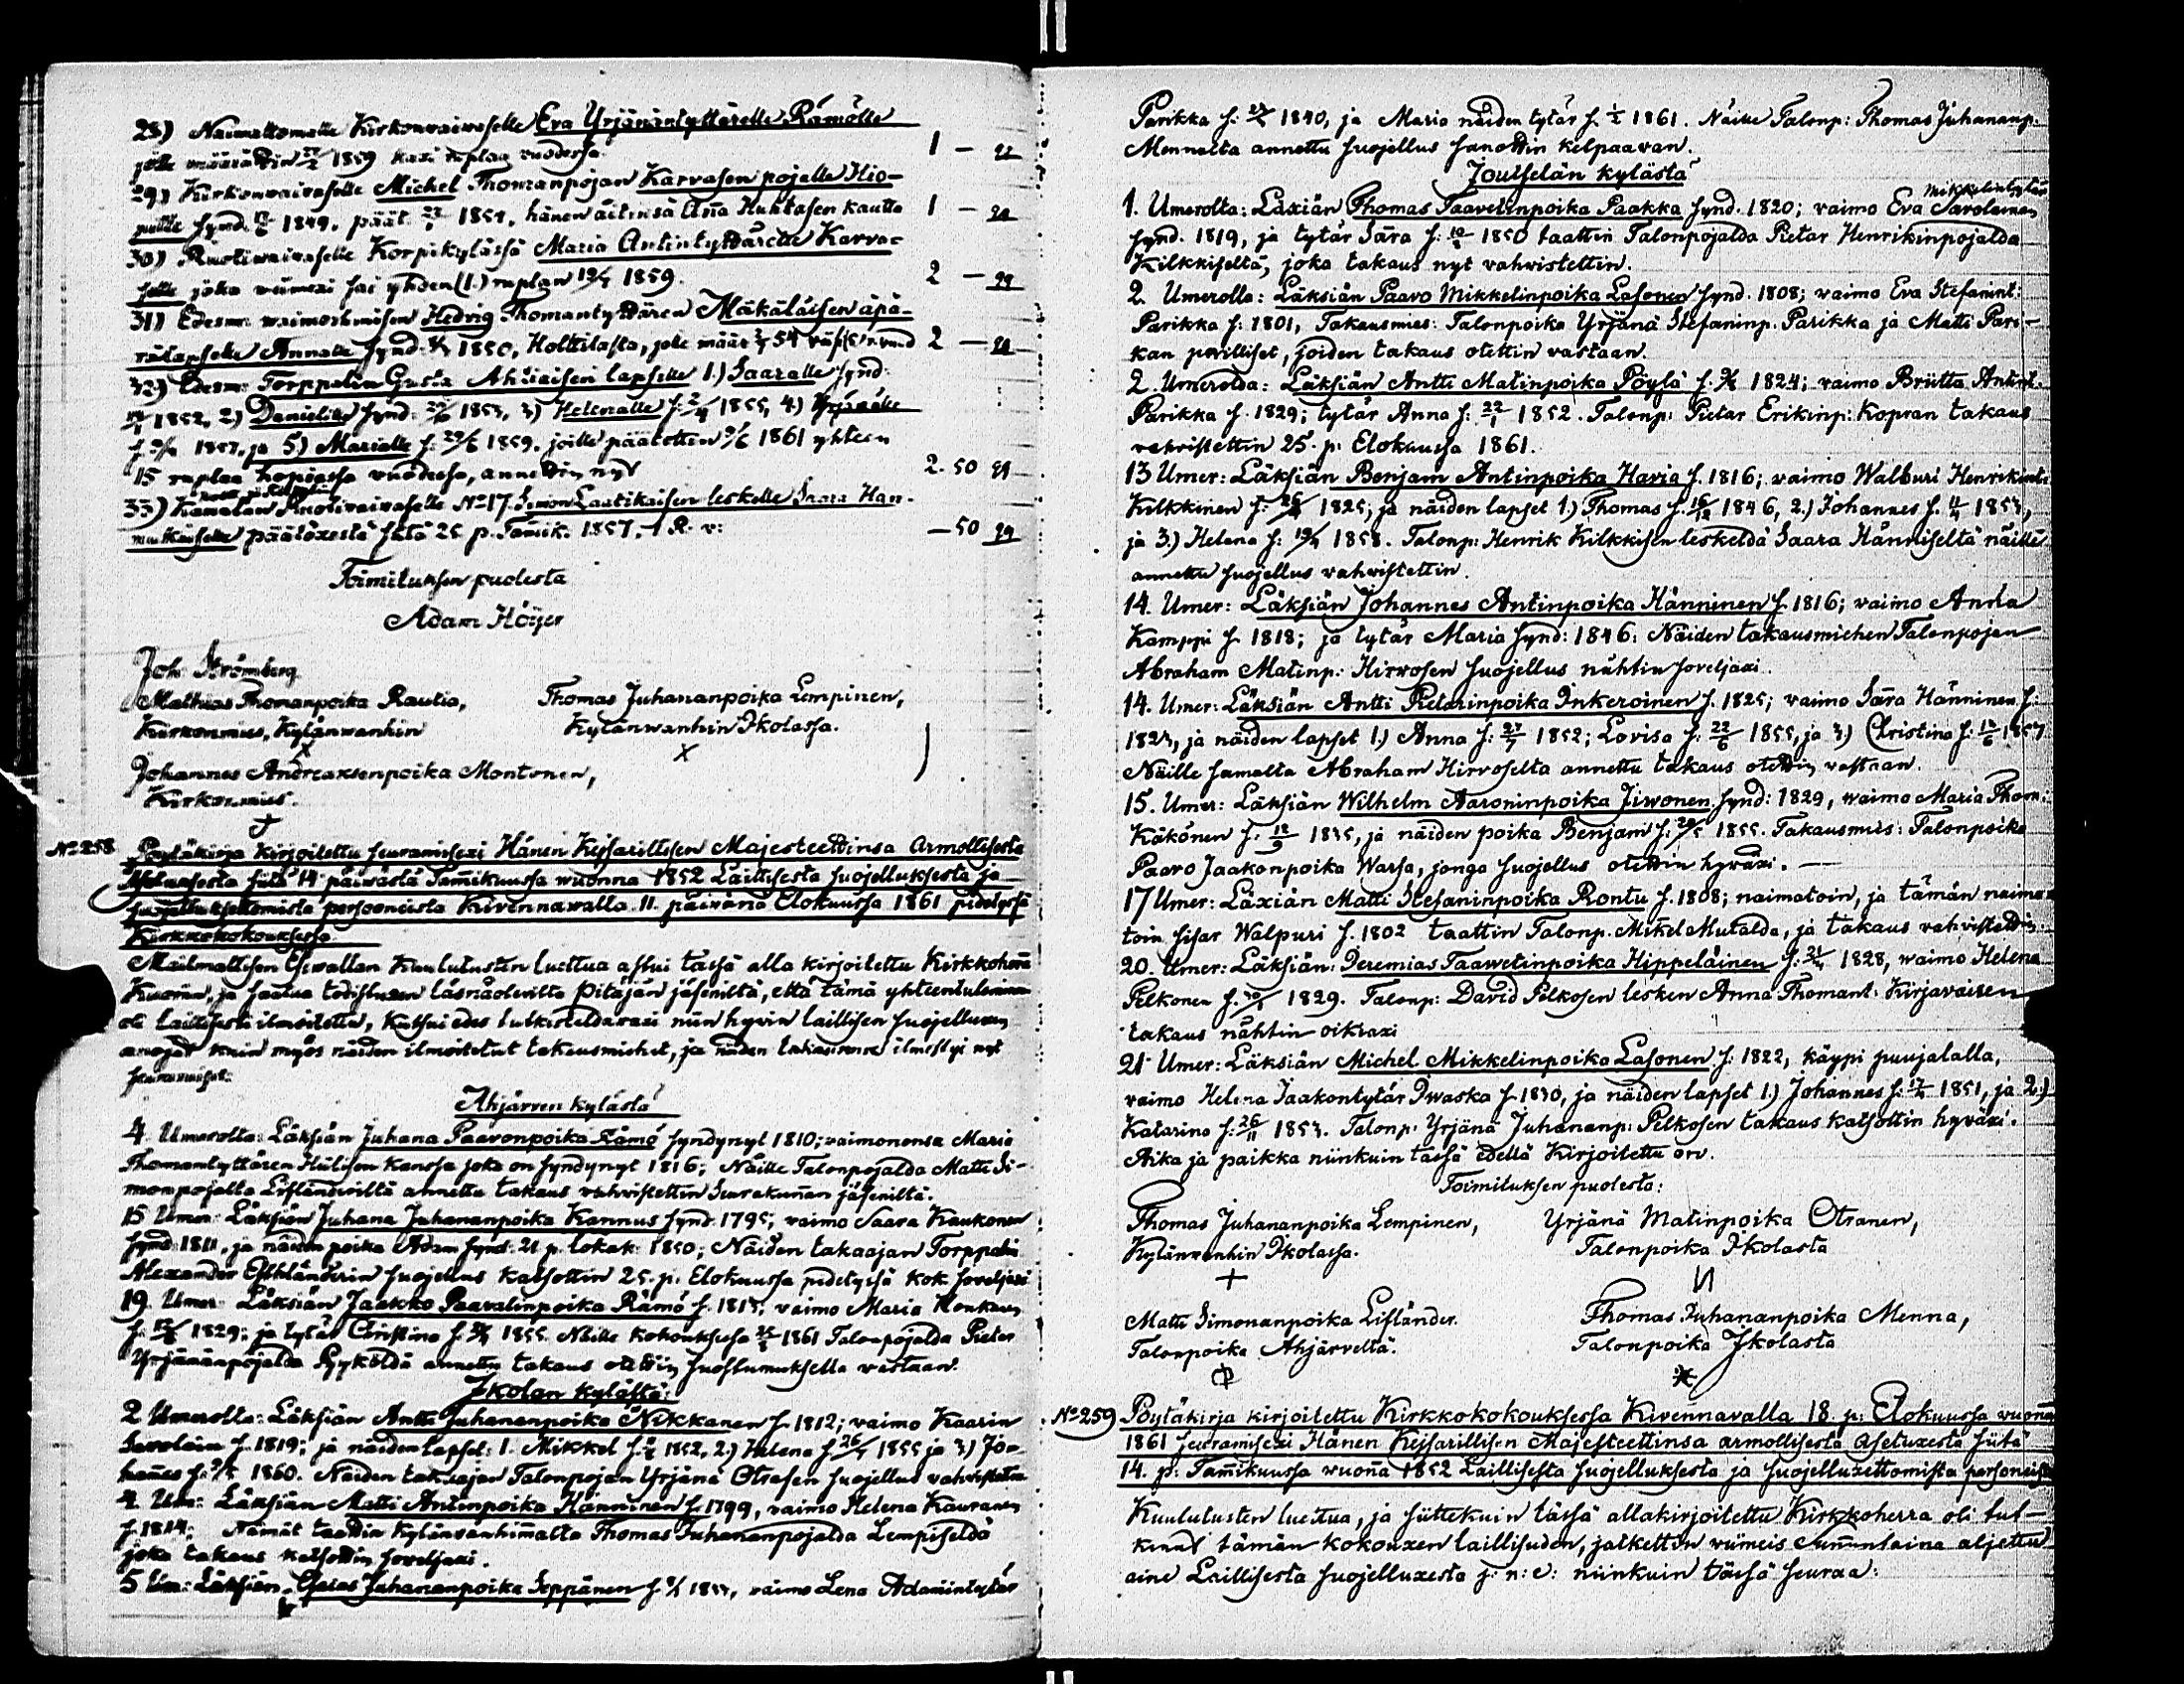 28) Naimattomalle Kirkonvaivaselle Eva Yrjänäntyttärelle Rämölle
jolle määrättiin 1859 kaxi ruplaa vuodessa. 1 —
29) Kirkonvaivaselle Michel Thomanpojan Karvasen pojalle Hio-
synd. 1849, päät. 1859, hänen äitinsä Anna Huhtasen kautta 1 —
30) Ruotivaivaselle Korpikylässä Maria Antintyttärelle Karva-
selle joka viimexi sai yhden (1.) ruplan 1859. 2 —
31) Edesm: waimoihmisen Hedvig Thomantyttären Mäkäläisen äpä-
rälapselle Annalle synd: 1850, Holttilasta, 2 —
32) Edesm: Torpparin Gusta Ahtiaisen lapselle 1.) Saaralle synd:
1852, 2) Danielille synd: 1853, 3) Helenalle f: 1855, 4) Yrjänälle
f. 1857, ja 5.) Marialle f: 1859, joille päätettin 1861 yhteen
15 ruplaa hopiassa vuodessa, annettin nyt 2. 50
33) Kamalan Ruotivaivaselle No 17. Simon Laatikaisen leskelle Saara Han-
päätöxestä siitä 25 p. Tamik. 1857. 1 R. v: — 50
Toimituksen puolesta
Adam Höijer
Joh. Strömberg
Mathias Thomanpoika Rautia, Thomas Juhananpoika Lempinen,
Kirkonmies, Kylänwanhin Kylänwanhin Ikolassa.
X X
Johannes Andreaxsenpoika Montonen,
Kirkonmies.
+
No 258 Pöytäkirja kirjoitettu seuramisexi Hänen Keisarillisen Majesteettinsa Armollisesta
Asetuxesta siitä 14 päivästä Tamikuussa wuonna 1852 Laillisesta suojelluksesta ja
suojelluksettomista persooneista Kivennavalla 11. päivänä Elokuussa 1861 pidetyssä
Kirkkokokouksessa.
Mailmallisen Esivallan Kuulutusten luettua astui tässä alla kirjoitettu Kirkkoherra
ja saatua todistuxen läsnäolevilta Pitäjän jäseniltä, että tämä yhteentuleminen
oli laillisesti ilmoitettu, Kutsui edes tutkisteldavaxi niin hyvin laillisen suojelluxen
anojat kuin myös näiden ilmoitetut takausmiehet, ja näiden
Ahjärven kylästä
4. Umerolta: Läksiän Juhana Paavonpoika Rämö syndynyt 1810; vaimonensa Maria
Thomantyttären Hulison kanssa joka on syndynyt 1816; Näille Talonpojalda Matti Si-
monpojalta Lifländeriltä annettu takaus vahvistettin Seurakunnan jäseniltä.
15 Umer: Läksiän Juhana Juhananpoika Kannus synd. 1795; vaimo Saara Kaukonen
synd: 1811, ja näiden poika Adam synd: 21 p. lokak: 1850; Näiden takaajan Torpparin
Alexander Esthländerin suojellus katsottin 25. p: Elokuussa pidetyssä kok. soveljaxi
19. Umer: Läksiän Jaakko Paavalinpoika Rämö f. 1813; vaimo Maria Monkanen
f: 1829; ja tytär Christina f. 1855. Näille kokouksessa 1861 Talonpojalda Pietar
Yrjänänpojalda Pyyköldä annettu takaus otettin suostumuksella vastaan.
Ikolan kylästä:
2 Umerolta: Läksiän Antti Juhananpoika Nikkanen f. 1812; vaimo Kaarin
Savolain f. 1819; ja näiden lapset: 1. Mikkel f. 1852, 2.) Helena f. 26/ 1855 ja 3) Jo-
hannes f: 1860. Näiden takaajan Talonpojan Yrjänä Otrasen suojellus vahvistettin
4. Um: Läksiän Matti Antinpoika Hänninen f. 1799, vaimo Helena Kauranen
f. 1814; Nämät taattin Kylänvanhimmalta Thomas Juhananpojalda Lempiseldä
joka takaus katsottin soveljaxi.
5 Um: Läksiän Juhananpoika Seppänen f. 1837, vaimo Lena Adamintytär
Parikka f: 1840, ja Maria näiden tytär f. 1861. Näille Talonp: Thomas Juhananp:
Mennalta annettu suojellus sanottin kelpaavan.
Joutselän kylästä
1. Umerolta: Läxiän Thomas Taavetinpoika Paakka synd. 1820; vaimo Eva Mikkelintytär Savolainen
synd. 1819, ja tytär Sara f: 1850 taattin Talonpojalda Pietar Henrikinpojalda
Kilkkiseltä, joka takaus nyt vahvistettin.
2. Umerolla: Läksiän Paavo Mikkelinpoika Lasonen synd. 1808; vaimo Eva Stefanint:
Parikka f: 1801, Takausmies: Talonpoika Yrjänä Stefaninp. Parikka ja Matti Pari-
kan perilliset, joiden takaus otettin vastaan.
2. Umerolda: Läksiän Antti Matinpoika Pöylä f. 1824; vaimo Briitta Antint.
Parikka f. 1829; tytär Anna f: 22/1 1852. Talonp: Pietar Erikinp: Kopran takaus
vahvistettin 25. p: Elokuussa 1861.
13 Umer: Läksiän Benjam Antinpoika Havia f. 1816; vaimo Walburi Henrikint:
Kilkkinen f: 1825; ja näiden lapset 1.) Thomas f. 16/12 1846, 2.) Johannes f. 1853,
ja 3.) Helena f: 1858. Talonp: Henrik Kilkkisen leskeldä Saara Hänniseltä näille
annettu suojellus vahvistettin.
14. Umer: Läksiän Johannes Antinpoika Hänninen f. 1816; vaimo Anna
Kamppi f. 1818; ja tytär Maria synd: 1846: Näiden takausmiehen Talonpojan
Abraham Matinp: Hirvosen suojellus nähtin soveljaxi.
14. Umer: Läksiän Antti Pietarinpoika Inkeroinen f. 1825; vaimo Sara Hänninen f:
1823, ja näiden lapset 1.) Anna f: 27/7 1852; Lovisa f: 22/6 1855, ja 3.) Christina f: 1857
Näille samalta Abraham Hirvoselta annettu takaus otettin vastaan.
15. Umer: Läksiän Wilhelm Aaroninpoika Iiwonen synd: 1829, waimo Maria Thom:
Käkönen f: 12/9 1835, ja näiden poika Benjam f: 1855. Takausmies: Talonpoika
Paavo Jaakonpoika Warsa, jonga suojellus otettin hyväxi. —
17 Umer: Läxiän Matti Stefaninpoika Rontu f. 1808; naimatoin, ja tämän naima-
toin sisar Walpuri f. 1802 taattin Talonp. Mikel Mutalda, ja takaus vahvistettin.
20. Umer: Läksiän: Jeremias Taawetinpoika Hippeläinen f: 1828, waimo Helena
Pelkonen f. 1829. Talonp: David Pelkosen lesken Anna Thomant: Kirjavaisen
takaus nähtin oikiaxi
21 Umer: Läksiän Michel Mikkelinpoika Lasonen f: 1822, käypi puujalalla,
vaimo Helena Jaakontytär Iwaska f. 1830, ja näiden lapset 1.) Johannes f: 1851, ja 2.)
Katarina f: 26/11 1853. Talonp: Yrjänä Juhananp: Pelkosen takaus katsottin hyväxi.
Aika ja paikka niinkuin tässä edellä Kirjoitettu on.
Toimituksen puolesta:
Thomas Juhananpoika Lempinen, Yrjänä Matinpoika Otranen,
Kylänvanhin Ikolassa. Talonpoika Ikolasta
+
Matti Simonanpoika Lifländer. Thomas Juhananpoika Menna,
Talonpoika Ahjärveltä. Talonpoika Ikolasta
No 259 Pöytäkirja kirjoitettu Kirkkokokouksessa Kivennavalla 18. p: Elokuussa vuonna
1861 seuramisexi Hänen Keisarillisen Majesteettinsa armollisesta asetuxesta siitä
14. p: Tammikuussa wuonna 1852 Laillisesta suojelluksesta ja suojelluxettomista personeista
Kuulutusten luettua, ja siittekuin tässä allakirjoitettu Kirkkoherra oli tut-
kinut tämän kokouxen laillisuden, jatkettin viimeis Sunnuntaina aljettu
aine Laillisesta suojelluxesta j: n: e: niinkuin tässä seuraa: